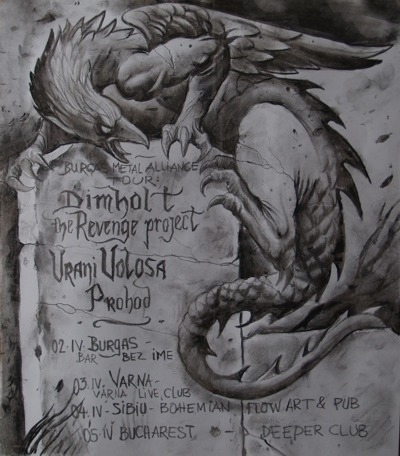 BURGAS METAL ALLIANCE
TOUR:
Dimholt
the Revenge project
Vrani Volosa
Prohod
02.IV. BURGAS -
BAR BEZ IME
03.IV. VARNA -
VARNA LIVE CLUB
04.IV - SIBIU - BOHEMIAN FLOW ART & PUB
05.IV BUCHAREST - DEEPER CLUB